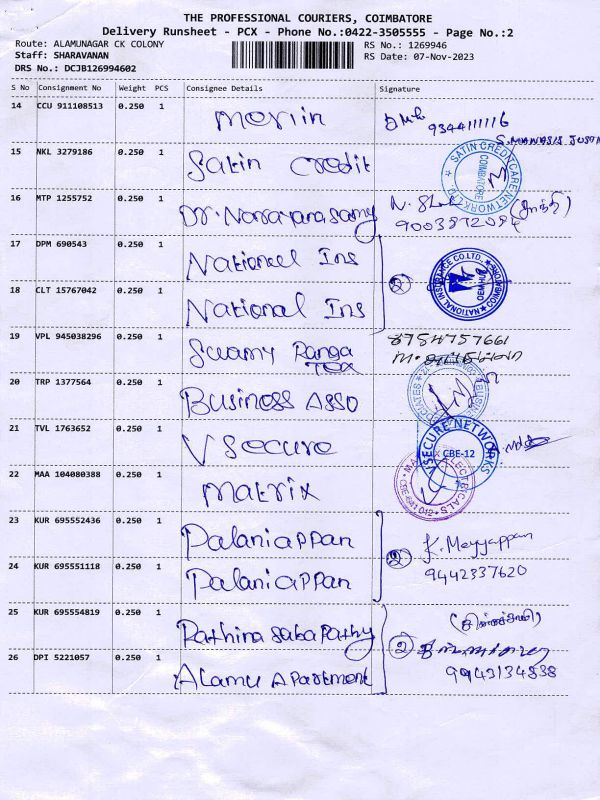 THE PROFESSIONAL COURIERS, COIMBATORE
Delivery Runsheet - PCX - Phone No.:0422-3505555 - Page No.:2
Route: ALAMUNAGAR CK COLONY RS No.: 1269946
Staff: SHARAVANAN RS Date: 07-Nov-2023
DRS No.: DCJB126994602
S No Consignment No Weight PCS Consignee Details Signature
14 CCU 911108513 0.250 1 Merlin
9344111116
15 NKL 3279186 0.250 1 Satin Credit
SATIN CREDITCARE NETWORK LTD. COIMBATORE
16 MTP 1255752 0.250 1 Dr. Narayanasamy
17 DPM 690543 0.250 1 National Ins
18 CLT 15767042 0.250 1 National Ins
2 NATIONAL INSURANCE CO.LTD. COIMBATORE
19 VPL 945038296 0.250 1 Swamy Ranga Tex
8754757661
20 TRP 1377564 0.250 1 Business Asso
21 TVL 1763652 0.250 1 V Secure
VSECURE NETWORKS CBE-12
22 MAA 104080388 0.250 1 Matrix
23 KUR 695552436 0.250 1 Palaniappan
24 KUR 695551118 0.250 1 Palaniappan
2 K. Meyyappan
9442337620
25 KUR 695554819 0.250 1 Rathina Sabapathy
26 DPI 5221057 0.250 1 Alamu Apartment
2
9943134838